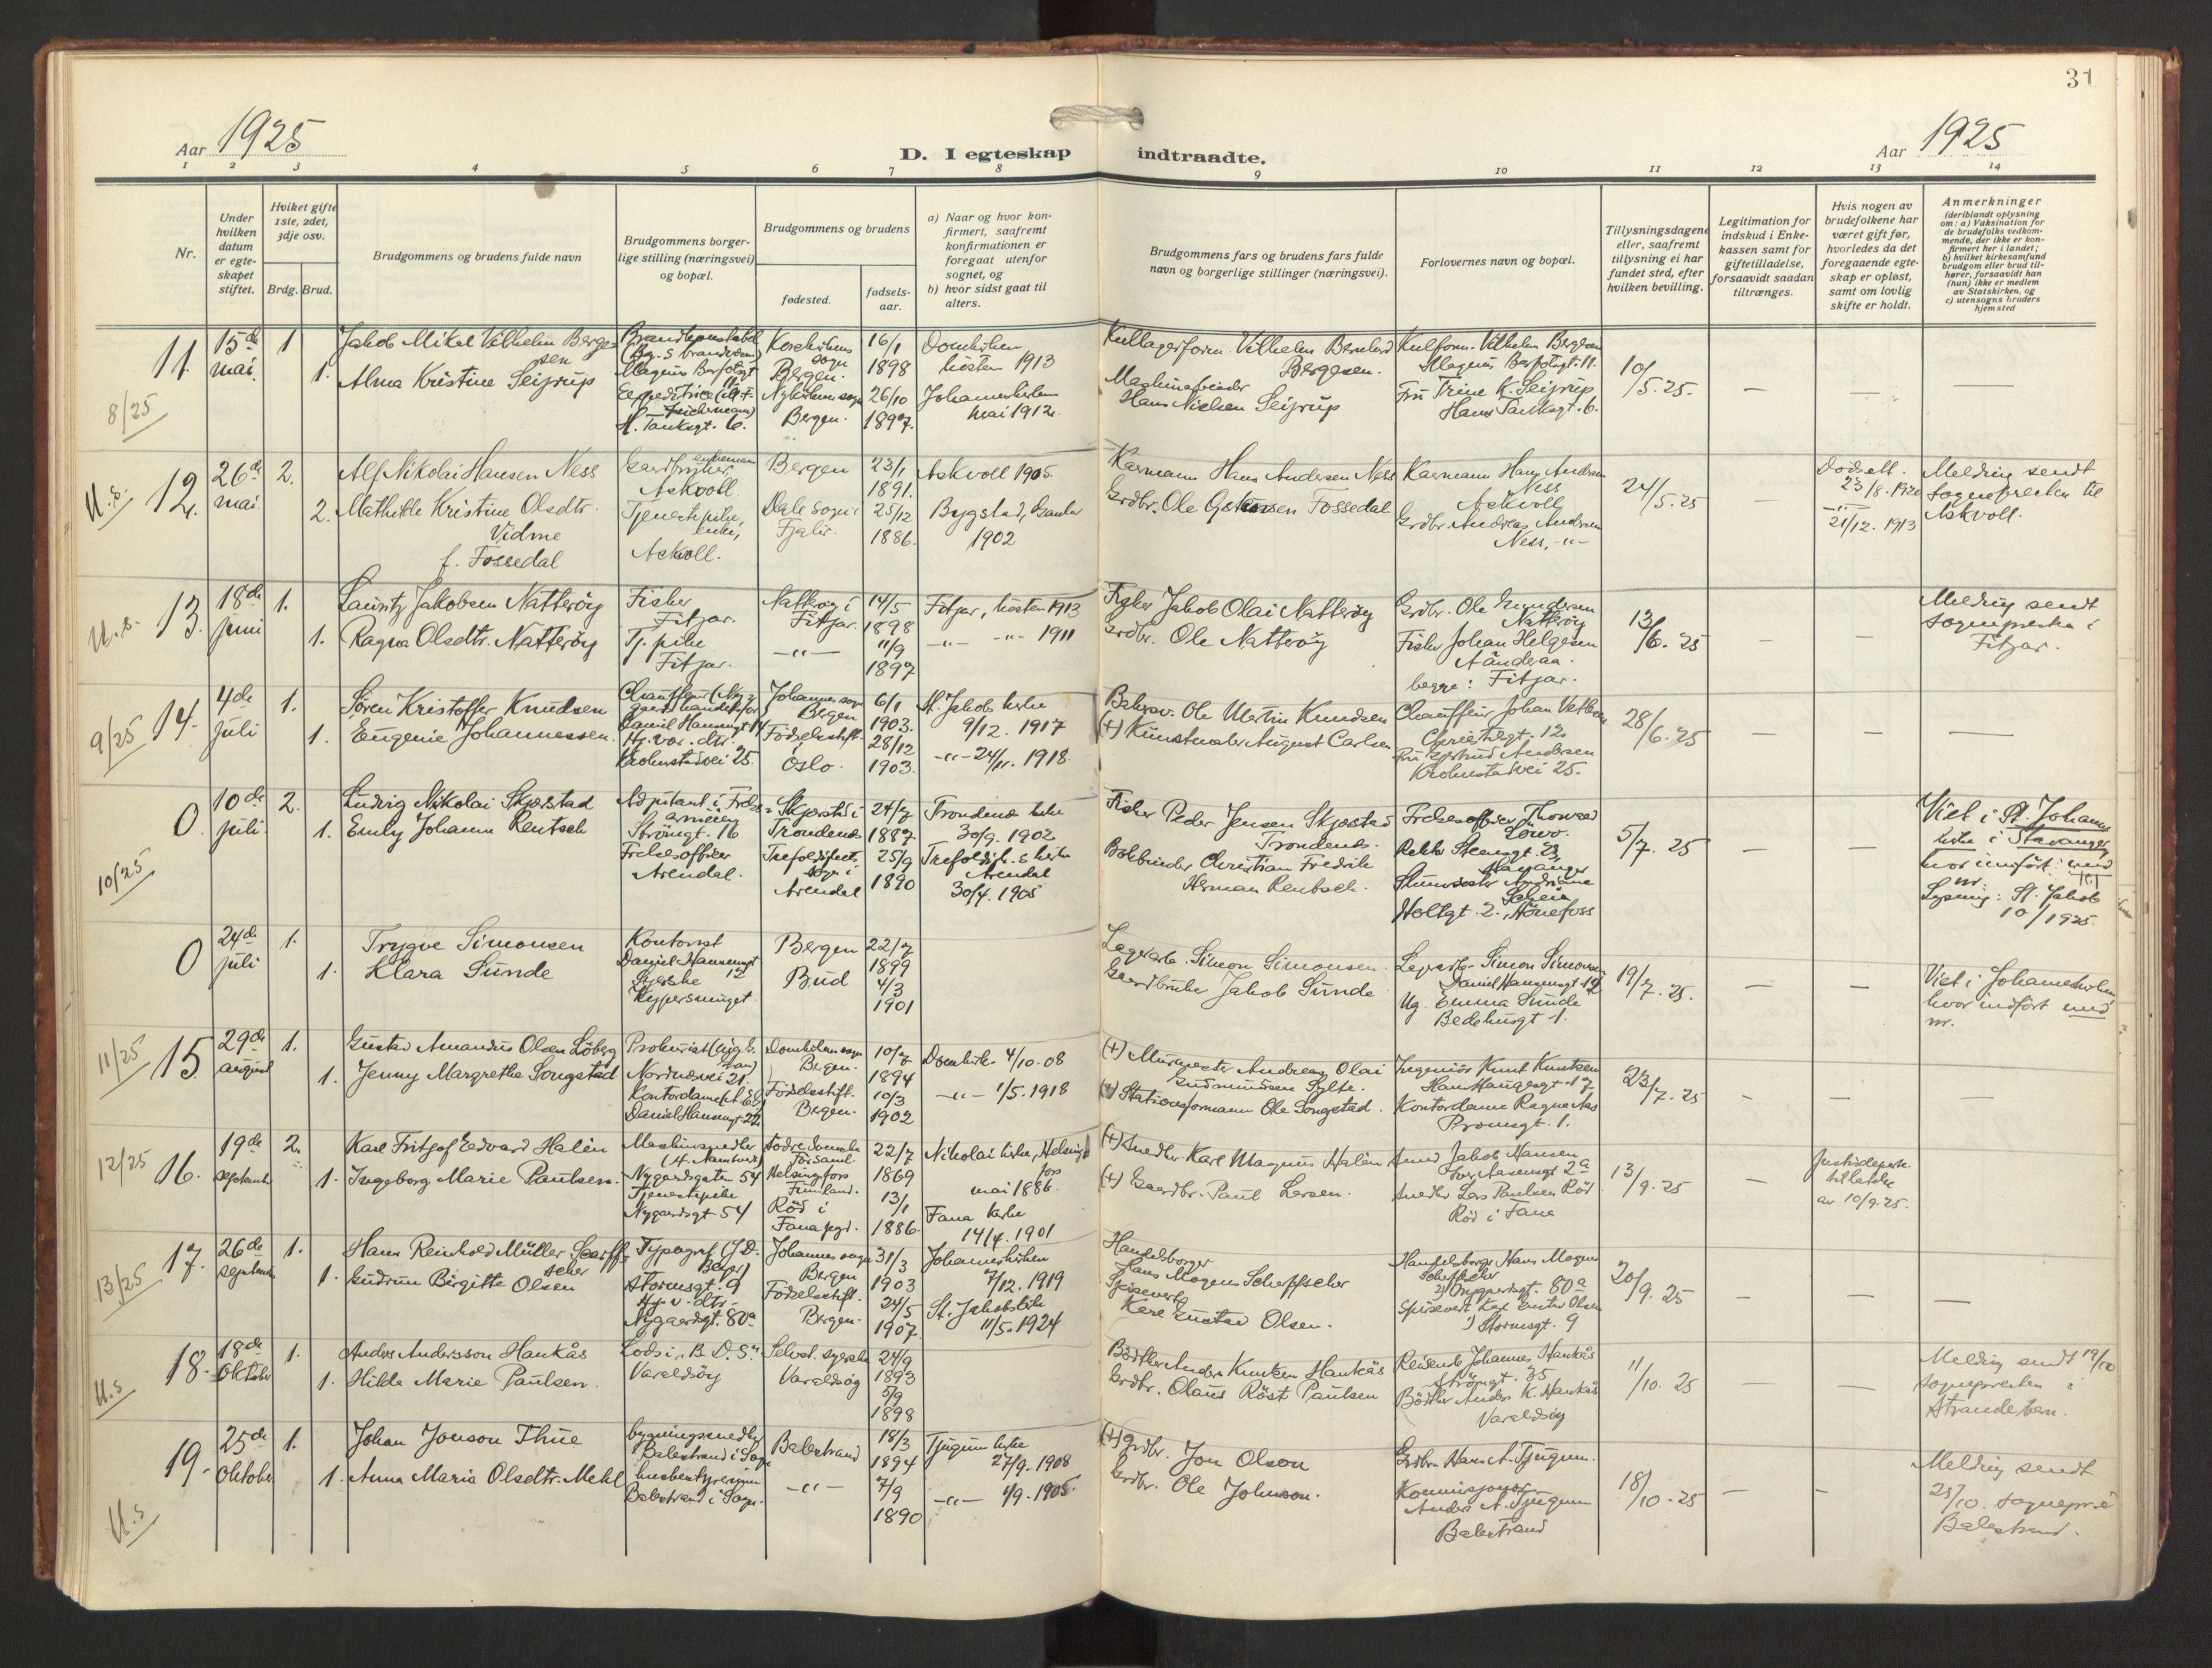 31
Aar 1925
D. I egteskap indtraadte.
Aar 1925
1 2 3 4 5 6 7 8 9 10 11 12 13 14
Nr.
Under
hvilken
datum
er egte-
skapet
stiftet.
Hviket gifte
1ste, 2det,
3dje osv.
Brdg.
Brud.
Brudgommens og brudens fulde navn
Brudgommens borger-
lige stilling (næringsvei)
og bopæl.
Brudgommens og brudens
fødested.
fødsels-
aar.
a) Naar og hvor kon-
firmert, saafremt
konfirmationen er
foregaat utenfor
sognet, og
b) hvor sidst gaat til
alters.
Brudgommens fars og brudens fars fulde
navn og borgerlige stillinger (næringsvei).
Forlovernes navn og bopæl.
Tillysningsdagene
eller, saafremt
tillysning ei har
fundet sted, efter
hvilken bevilling.
Legitimation for
indskud i Enke-
kassen samt for
giftetilladelse,
forsaavidt saadan
tiltrænges.
Hvis nogen av
brudefolkene har
været gift før,
hvorledes da det
foregaaende egte-
skap er opløst,
samt om lovlig
skifte er holdt.
Anmerkninger
(deriblandt oplysning
om: a) Vaksination for
de brudefolks vedkom-
mende, der ikke er kon-
firmert her i landet;
b) hvilket kirkesamfund
brudgom eller brud til-
hører, forsaavidt han
(hun) ikke er medlem
av Statskirken, og
c) utensogns bruders
hjemsted
8/25
11.
15de
mai.
1
1.
Jakob Mikal Vilhelm Berge-
sen
Alma Kristine Seijrup
Brandkonstabel
(Bg.s brandvæsen)
Magnus Barfotsgt
11.
H. Tanksgt. 6.
Korskirkens
sogn
Bergen.
Nykirkens sogn
Bergen.
16/1
1898
26/10
1897.
Domkirken
høsten 1913
Johanneskirken
mai 1912.
Kullagerform. Vilhelm Bernhard
Bergesen.
Maskinarbeider
Hans Nielsen Seijrup
Kulform. Vilhelm Bergesen
Magnus Barfotsgt. 11.
Fru Trine K. Seijrup
Hans Tanksgt. 6.
10/5.25.
—
—
—
U.s.
12.
26de
mai.
2.
2.
Alf Nikolai Hansen Ness
Mathilde Kristine Olsdtr.
Vidme
f. Fossedal
Gaardbruker, enkemann
Askvoll.
Tjenestepike,
enke,
Askvoll.
Bergen
Dale sogn i
Fjaler.
23/1
1891.
25/12
1886.
Askvoll 1905.
Bygstad, Gaular
1902
Kaarmann Hans Andersen Ness
Grdbr. Ole Fossedal
Kaarmann Hans Andersen
Ness
Askvoll
Grdbr. Andreas Andersen
Ness, -"-
24/5.25
—
Dødsatt.
23/8.1920
-"-
21/12. 1913
Melding sendt
sognepresten til
Askvoll.
U.s.
13.
18de
juni
1.
1.
Lauritz Jakobsen Natterøy
Ragna Olsdtr. Natterøy
Fisker
Fitjar.
Tj. pike
Fitjar.
Natterøy i
Fitjar.
-"-
14/5
1898
11/9
1897
Fitjar, høsten 1913
-"- -"- 1911
Fisker Jakob Olai Natterøy
Grdbr. Ole Natterøy
Grdbr. Ole Gundersen
Natterøy
Fisker Johan Helgesen
Aanderaa.
begge: Fitjar.
13/6.25
—
—
Melding sendt
sognepresten i
Fitjar.
9/25
14.
4de
juli
1.
1.
Søren Kristoffer Knudsen
Eugenie Johannessen.
Daniel Hansensgt 14
Hj.vær. dtr.
Kronstadvei 25.
Johannes sogn
Bergen
Fødselsstift.
Oslo.
6/1
1903.
28/12
1903.
St. Jakob kirke
9/12. 1917
-"- 24/11. 1918.
Ole Martin Knudsen
(+) Kunstmaler August Carlsen
Chauffeur Johan
Christiesgt. 12.
Fru Gjertrud Andersen
Kronstadvei 25.
28/6.25
—
—
—
10/25
0.
10de
juli.
2.
1.
Ludvig Nikolai Skjæstad
Emly Johanne Rentsch
Adjutant i Frels-
armeen
Strømgt. 16
Frelsesoffiser
Arendal.
Skjæstad i
Trondenes
Trefoldigheds
sogn i
Arendal
24/7
1887
25/9
1890
Trondenes kirke
30/9. 1902
Trefoldigh.s kirke
Arendal
30/4. 1905
Fisker Peder Jensen Skjæstad
Trondenes.
Bokbinder Christian Fredrik
Herman Rentsch.
Frelsesoffiser Thorvald
Stavanger
Holtgt. 2. Hönefoss
5/7.25
—
—
Viet i St. Johannes
kirke i Stavanger,
hvor innført med
nr.
Lysning: St. Jakob
10/1925.
0
24de
juli
1.
1.
Trygve Simonsen
Klara Sunde
Kontorist
Daniel Hansensgt
12
Syerske
Bergen
Bud
22/7
1899
4/3
1901
Lagerarb. Simon Simonsen
Gaardbruker Jakob Sunde
Lagerarb. Simon Simonsen
Daniel Hansensgt 12
Ug. Emma Sunde
Bedehusgt 1.
19/7.25.
—
—
Viet i Johanneskirken,
hvor indført med
nr.
11/25
15
29de
august
1.
1.
Gustav Amandus Olsen Løberg
Jenny Margrethe Songstad
Nordnesvei 21.
Daniel Hansensgt 22.
Domkirkens sogn
Bergen.
Fødselsstift.
Bergen.
10/7
1894
10/3
1902
Domkirk. 4/10.08
-"- 1/5.1918
(+) Murmester Andreas Olai
Gudmundsen Sylte.
(+) Stationsformann Ole Songstad.
Ingeniør Knut Knutsen
Hans Haugesgt. 17
Kontordame Ragna Aas
Promsgt. 1.
23/7.25
-
—
—
12/25
16.
19de
september
2.
1.
Karl Fritjof Edvard Halén
Ingeborg Marie Paulsen.
Maskinsnedker
Nygaardsgaten 54
Tjenestepike
Nygaardsgt. 54
Södre Svenska
Församl.
Helsingfors
Finnland.
Röd i
Fana pgd.
22/7
1869
13/1
1886.
Nikolai kirke, Helsing-
fors
mai 1886.
Fana kirke
14/4.1901
(+) Snedker Karl Magnus Halén
(+) Gaardbr. Paul Larsen.
Smed Jakob Hansen
Ivar Aasensgt 2a
Snedker Lars Paulsen Röd
Röd i Fana
13/9.25
—
Justisdepart.
tillatelse
av 10/9.25.
13/25
17.
26de
september
1.
1.
Hans Reinhold Müller Scarff-
scher
Gudrun Birgitte Olsen
Typograf (J.D.
Beyer)
Stormsgt. 9
Hj. v. dtr.
Nygaardsgt. 80a
Johannes sogn
Bergen
Fødselsstift.
Bergen.
31/3
1903
24/5
1907.
Johanneskirken
7/12.1919
St. Jakobskirke
11/5.1924
Handelsborger
Hans Mogens Scherffscher
Spisevert
Karl Gustav Olsen.
Handelsborger Hans Mogens
Scherffscher
2) Nygaardsgt. 80a
Spisevert Karl Gustav Olsen
1) Stormsgt. 9
20/9.25
—
—
—
U.s
18.
18de
Oktober
1.
1.
Anders Andersson Haukås
Hilda Marie Paulsen.
Lods i „B.D.S."
Varaldsøy
Selvst. syerske
Varaldsøy
24/9
1893
5/9
1898
Bødker Anders Knutsen Haukås
Grdbr. Olaus Röst Paulsen
Reisende Johannes Haukås
Strömgt. 35
Bödker Anders K. Haukås
Varaldsöy
11/10.25
—
Melding sendt 19/10
sognepresten i
Strandebarm.
U.s
19.
25de
Oktober
1.
1.
Johan Jonson Thue
Anna Maria Olsdtr. Mehl
bygningssnedker
Balestrand i Sogn
husbestyrerinne
Balestrand i Sogn.
Balestrand
-"-
18/3
1894
7/9
1890
Tjugum kirke
27/9.1908
-"- 4/9.1905.
(+) Grdbr. Jon Olson
Grdbr. Ole Johnson.
Grdbr. Hans A. Tjugum.
Kommisjonær
Anders A. Tjugum
Balestrand
18/10.25
—
-
Melding sendt
25/10. sognepr. i
Balestrand.